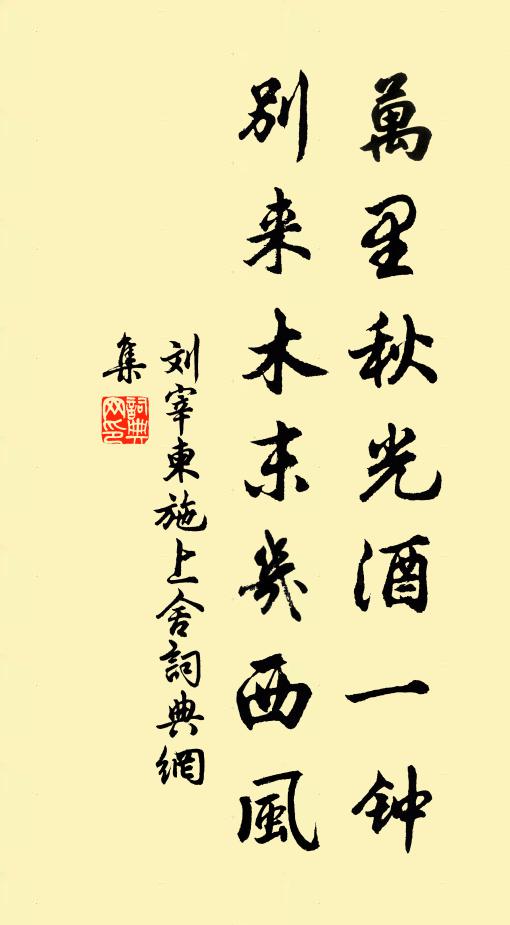 萬里秋光酒一钟
別来木末幾西風
刘宰東施上舍詞典網
集
詞典网印